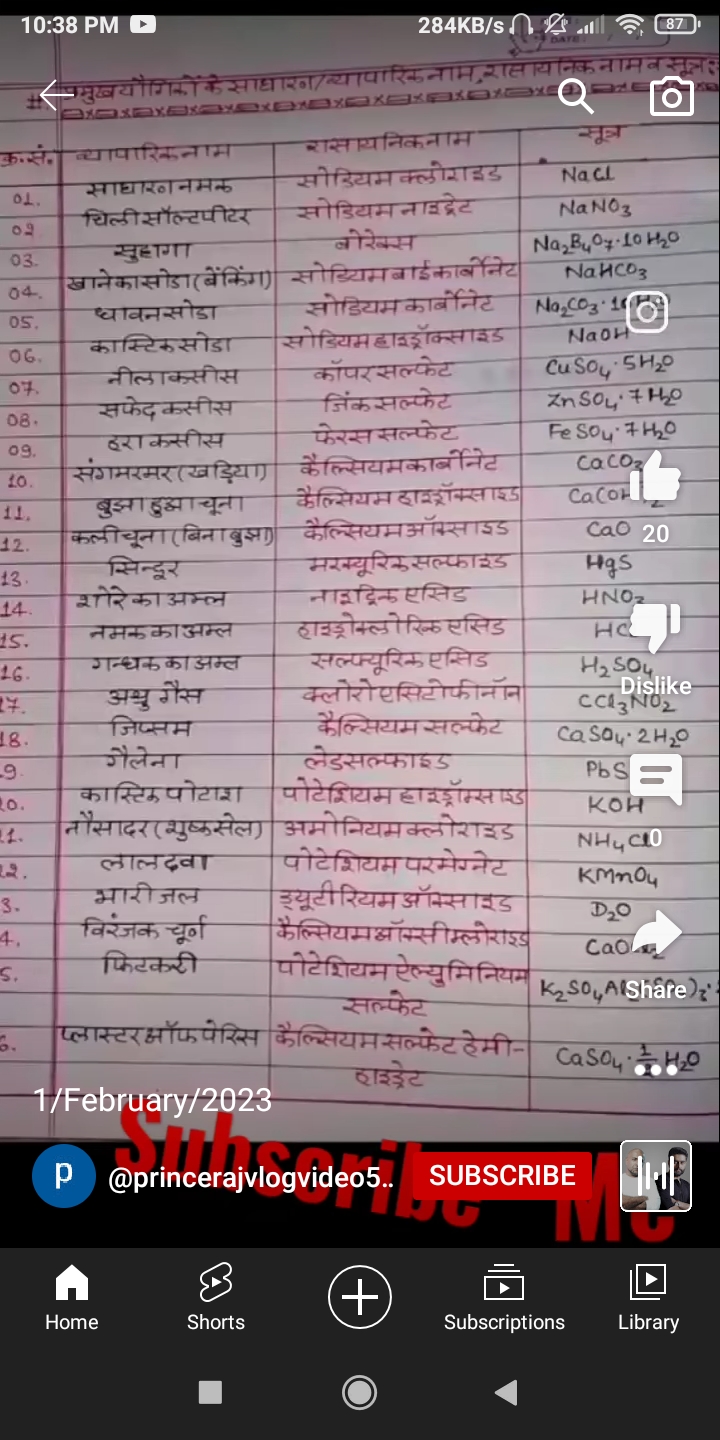 10:38 PM 284KB/s 87
DATE
मुख यौगिकों के साधारण/व्यापारिक नाम, रासायनिक नाम व सूत्र
क्र.सं. व्यापारिक नाम रासायनिक नाम सूत्र
01. साधारण नमक सोडियम क्लोराइड NaCl
02 चिली सॉल्टपीटर सोडियम नाइट्रेट NaNO₃
03. सुहागा बोरेक्स Na₂B₄O₇·10H₂O
04. खाने का सोडा (बेंकिंग) सोडियम बाईकार्बोनेट NaHCO₃
05. धावन सोडा सोडियम कार्बोनेट Na₂CO₃·10H₂O
06. कास्टिक सोडा सोडियम हाइड्रॉक्साइड NaOH
07. नीला कसीस कॉपर सल्फेट CuSO₄·5H₂O
08. सफेद कसीस जिंक सल्फेट ZnSO₄·7H₂O
09. हरा कसीस फेरस सल्फेट FeSO₄·7H₂O
10. संगमरमर (खड़िया) कैल्सियम कार्बोनेट CaCO₃
11. बुझा हुआ चूना कैल्सियम हाइड्रॉक्साइड
12. कली चूना (बिना बुझा) कैल्सियम ऑक्साइड CaO
20
13. सिन्दूर मरक्यूरिक सल्फाइड HgS
14. शोरे का अम्ल नाइट्रिक एसिड HNO₃
15. नमक का अम्ल हाइड्रोक्लोरिक एसिड
16. गन्धक का अम्ल सल्फ्यूरिक एसिड H₂SO₄
Dislike
7. अश्रु गैस क्लोरो एसिटोफीनॉन CCl₃NO₂
18. जिप्सम कैल्सियम सल्फेट CaSO₄·2H₂O
9. गैलेना लेड सल्फाइड PbS
0. कास्टिक पोटाश पोटेशियम हाइड्रॉक्साइड KOH
1. नौसादर (शुष्क सेल) अमोनियम क्लोराइड NH₄Cl
0
2. लाल दवा पोटेशियम परमेग्नेट KMnO₄
3. भारी जल ड्यूटीरियम ऑक्साइड D₂O
4. विरंजक चूर्ण कैल्सियम ऑक्सीक्लोराइड
5. फिटकरी पोटेशियम ऐल्युमिनियम K₂SO₄
Share
सल्फेट
6. प्लास्टर ऑफ पेरिस कैल्सियम सल्फेट हेमी- CaSO₄·½H₂O
हाइड्रेट
1/February/2023
Subscribe Me
p @princerajvlogvideo5.. SUBSCRIBE
Home Shorts Subscriptions Library